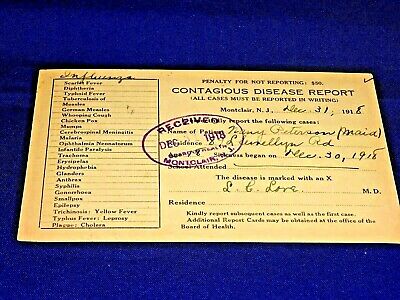 Influenza
Scarlet Fever
Diphtheria
Typhoid Fever
Tuberculosis of
Measles
German Measles
Whooping Cough
Chicken Pox
Mumps
Cerebrospinal Meningitis
Malaria
Ophthalmia Neonatorum
Infantile Paralysis
Trachoma
Erysipelas
Hydrophobia
Glanders
Anthrax
Syphilis
Gonorrhoea
Smallpox
Epilepsy
Trichinosis: Yellow Fever
Typhus Fever: Leprosy
Plague: Cholera
PENALTY FOR NOT REPORTING: $50.
CONTAGIOUS DISEASE REPORT
(ALL CASES MUST BE REPORTED IN WRITING)
Montclair, N. J., Dec. 31, 1918
report the following cases:
Name of Patient Peterson (Maid)
Residence Llewellyn Rd
Sickness began on Dec. 30, 1918
School Attended
RECEIVED
DEC
MONTCLAIR
The disease is marked with an X
L. C. Love. M. D.
Residence
Kindly report subsequent cases as well as the first case.
Additional Report Cards may be obtained at the office of the
Board of Health.